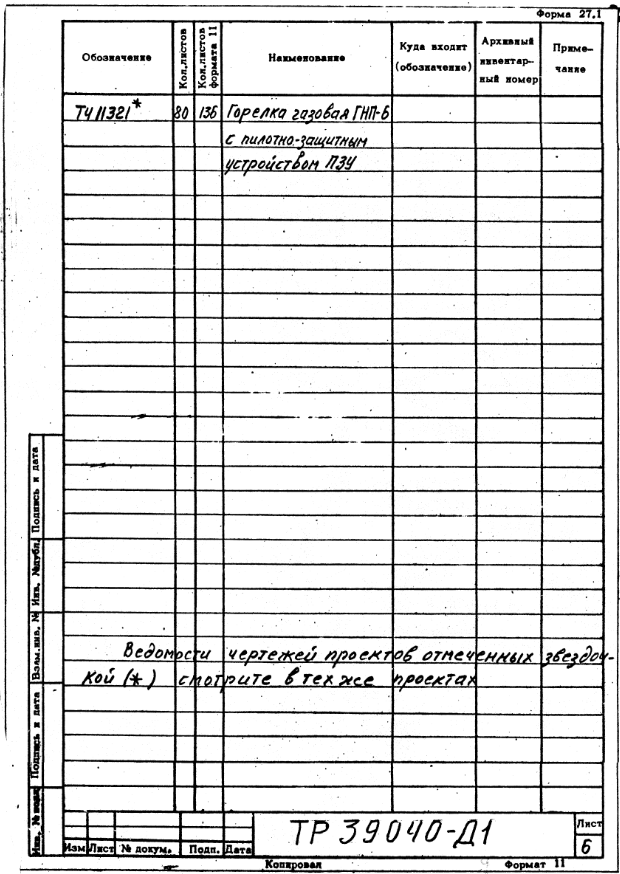 Форма 27.1
Обозначение
Кол.листов
Кол.листов
формата 11
Наименование
Куда входит
(обозначение)
Архивный
инвентар-
ный номер
Приме-
чание
ТЧ 11321* 80 136 Горелка газовая ГНП-6
с пилотно-защитным
устройством ПЗУ
Ведомости чертежей проектов отмеченных звездоч-
кой (*) смотрите в тех же проектах
Подпись и дата
Инв. №дубл.
Взам.инв. №
Подпись и дата
Инв. № подл
Изм Лист № докум. Подп. Дата
ТР 39040-Д1
Лист
6
Копировал
Формат 11